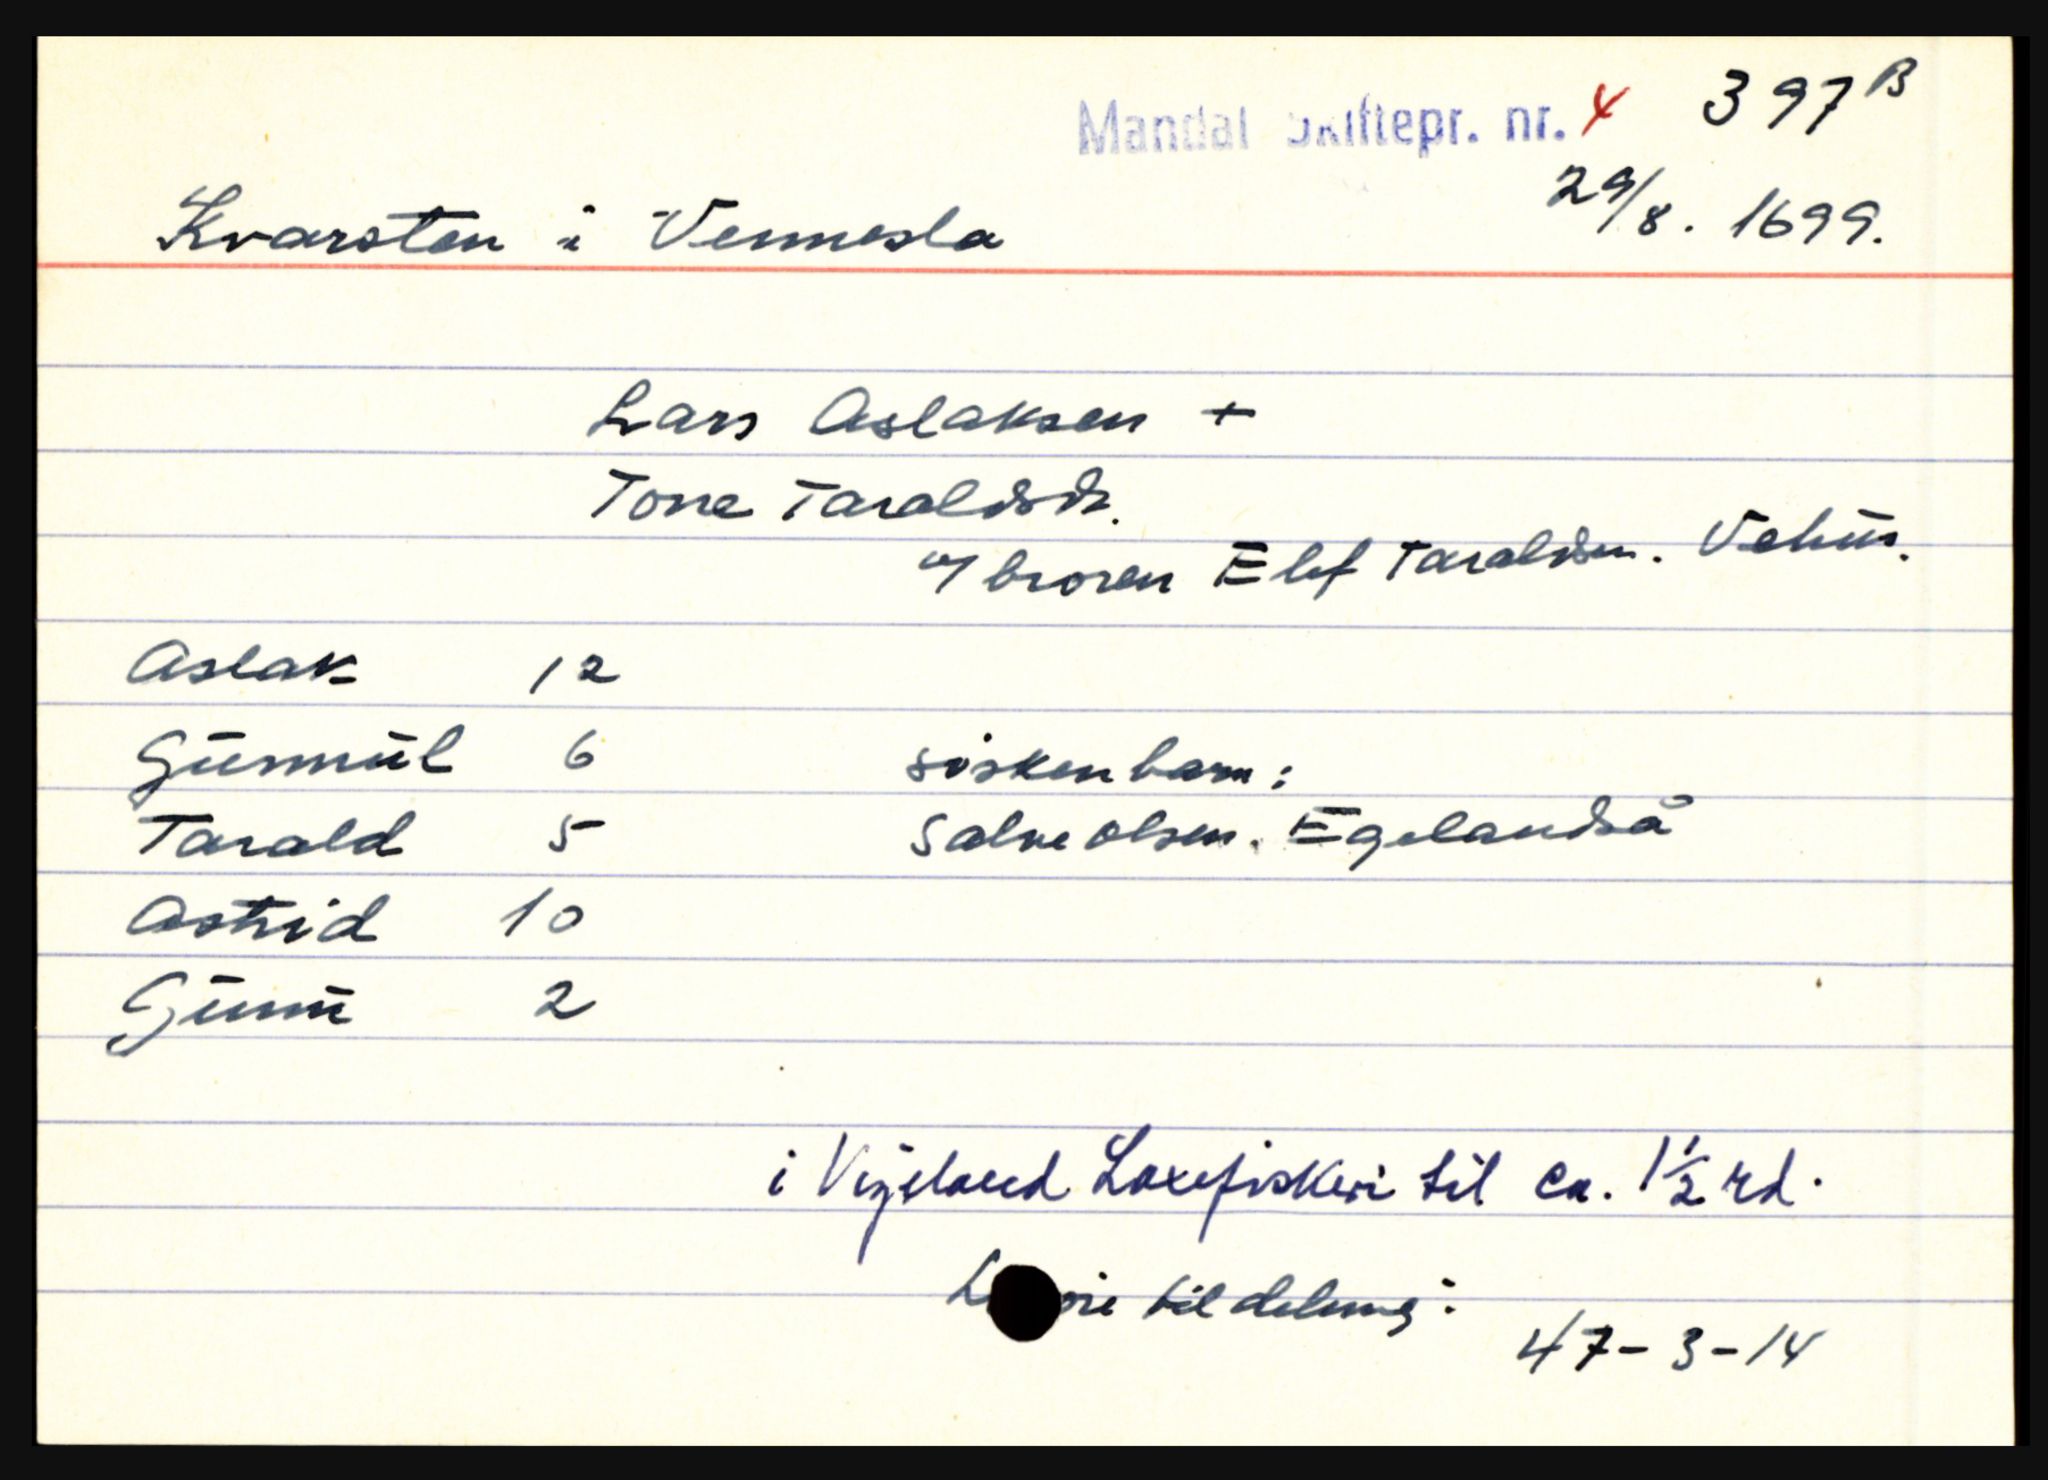 Mandal Skiftepr. nr. 4 397B
29/8. 1699.
Kvarsten i Vennesla
Lars Aslaksen +
Tone Taraldsdr.
m/ broren Elef Taraldsen. Vehus.
Aslak 12
Gunnul 6 søskenbarn:
Tarald 5 Salve Olsen. Egelandså
Astrid 10
Gunn 2
i Vigeland Laxefiskeri til ca. 1½ rd.
til deling:
47-3-14